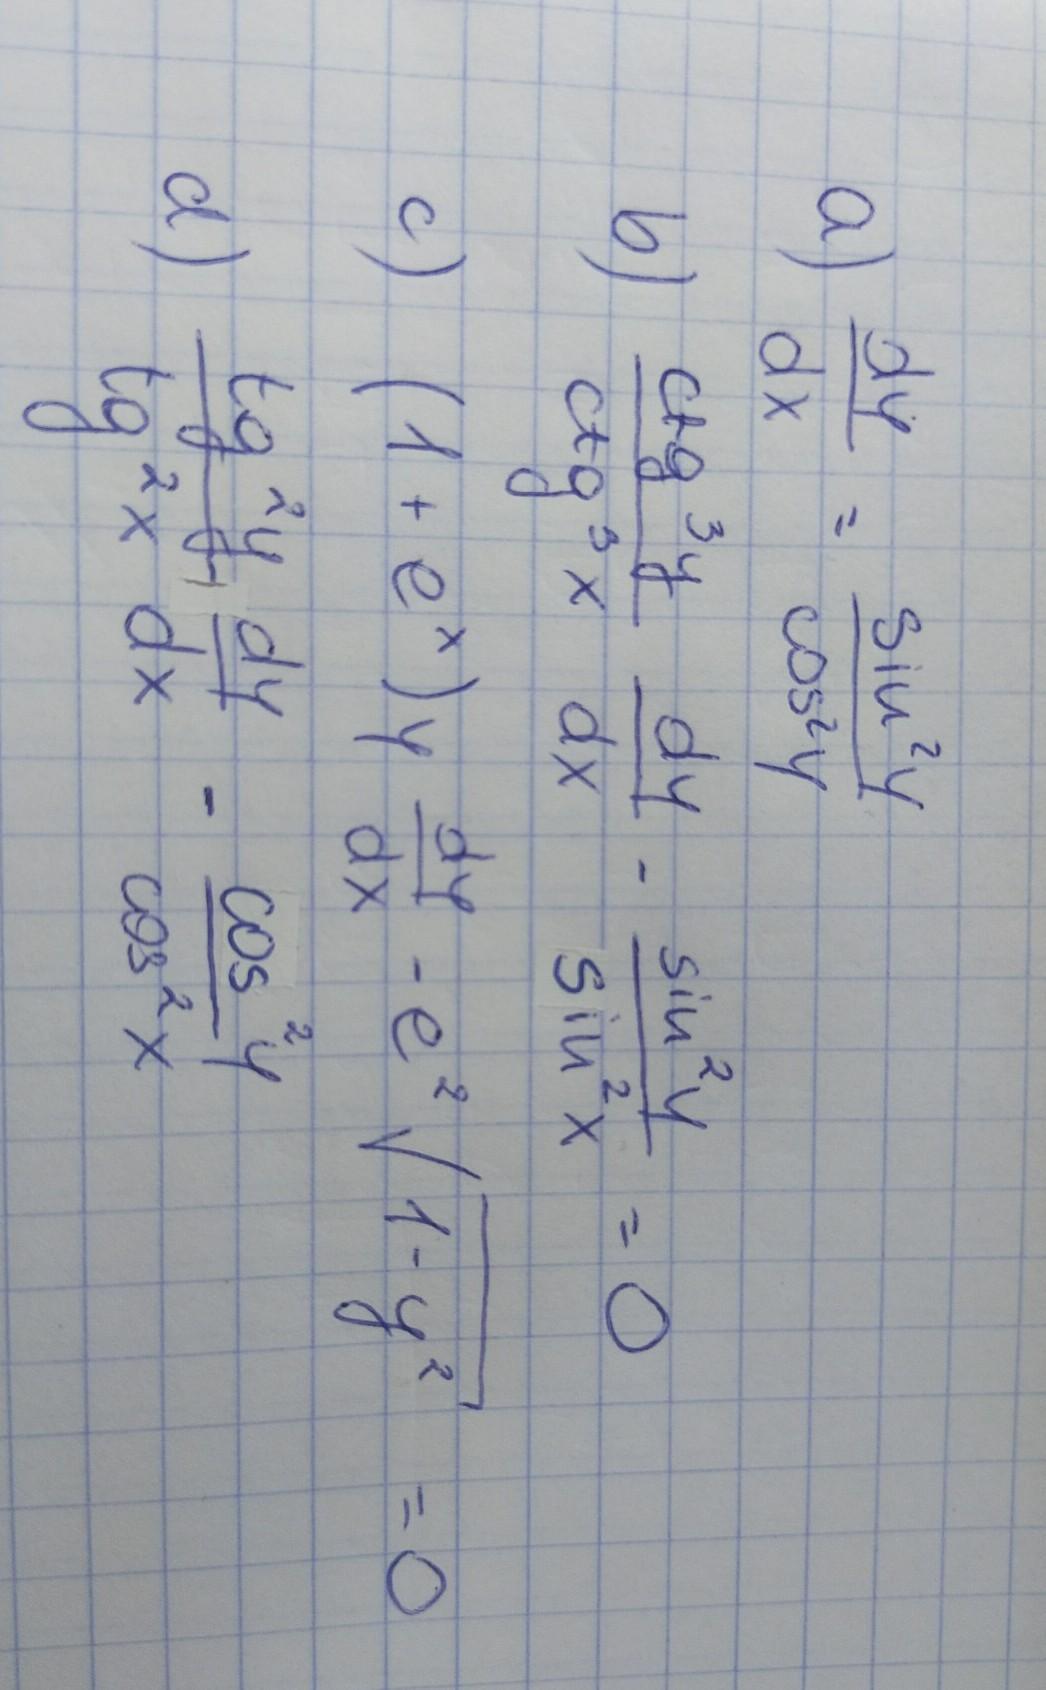 a) dy/dx = sin²y/cos²y
b) ctg³y/ctg³x dy/dx - sin²y/sin²x = 0
c) (1 + eˣ)y dy/dx - e² √(1-y²) = 0
d) tg²y/tg²x dy/dx - cos²y/cos²x